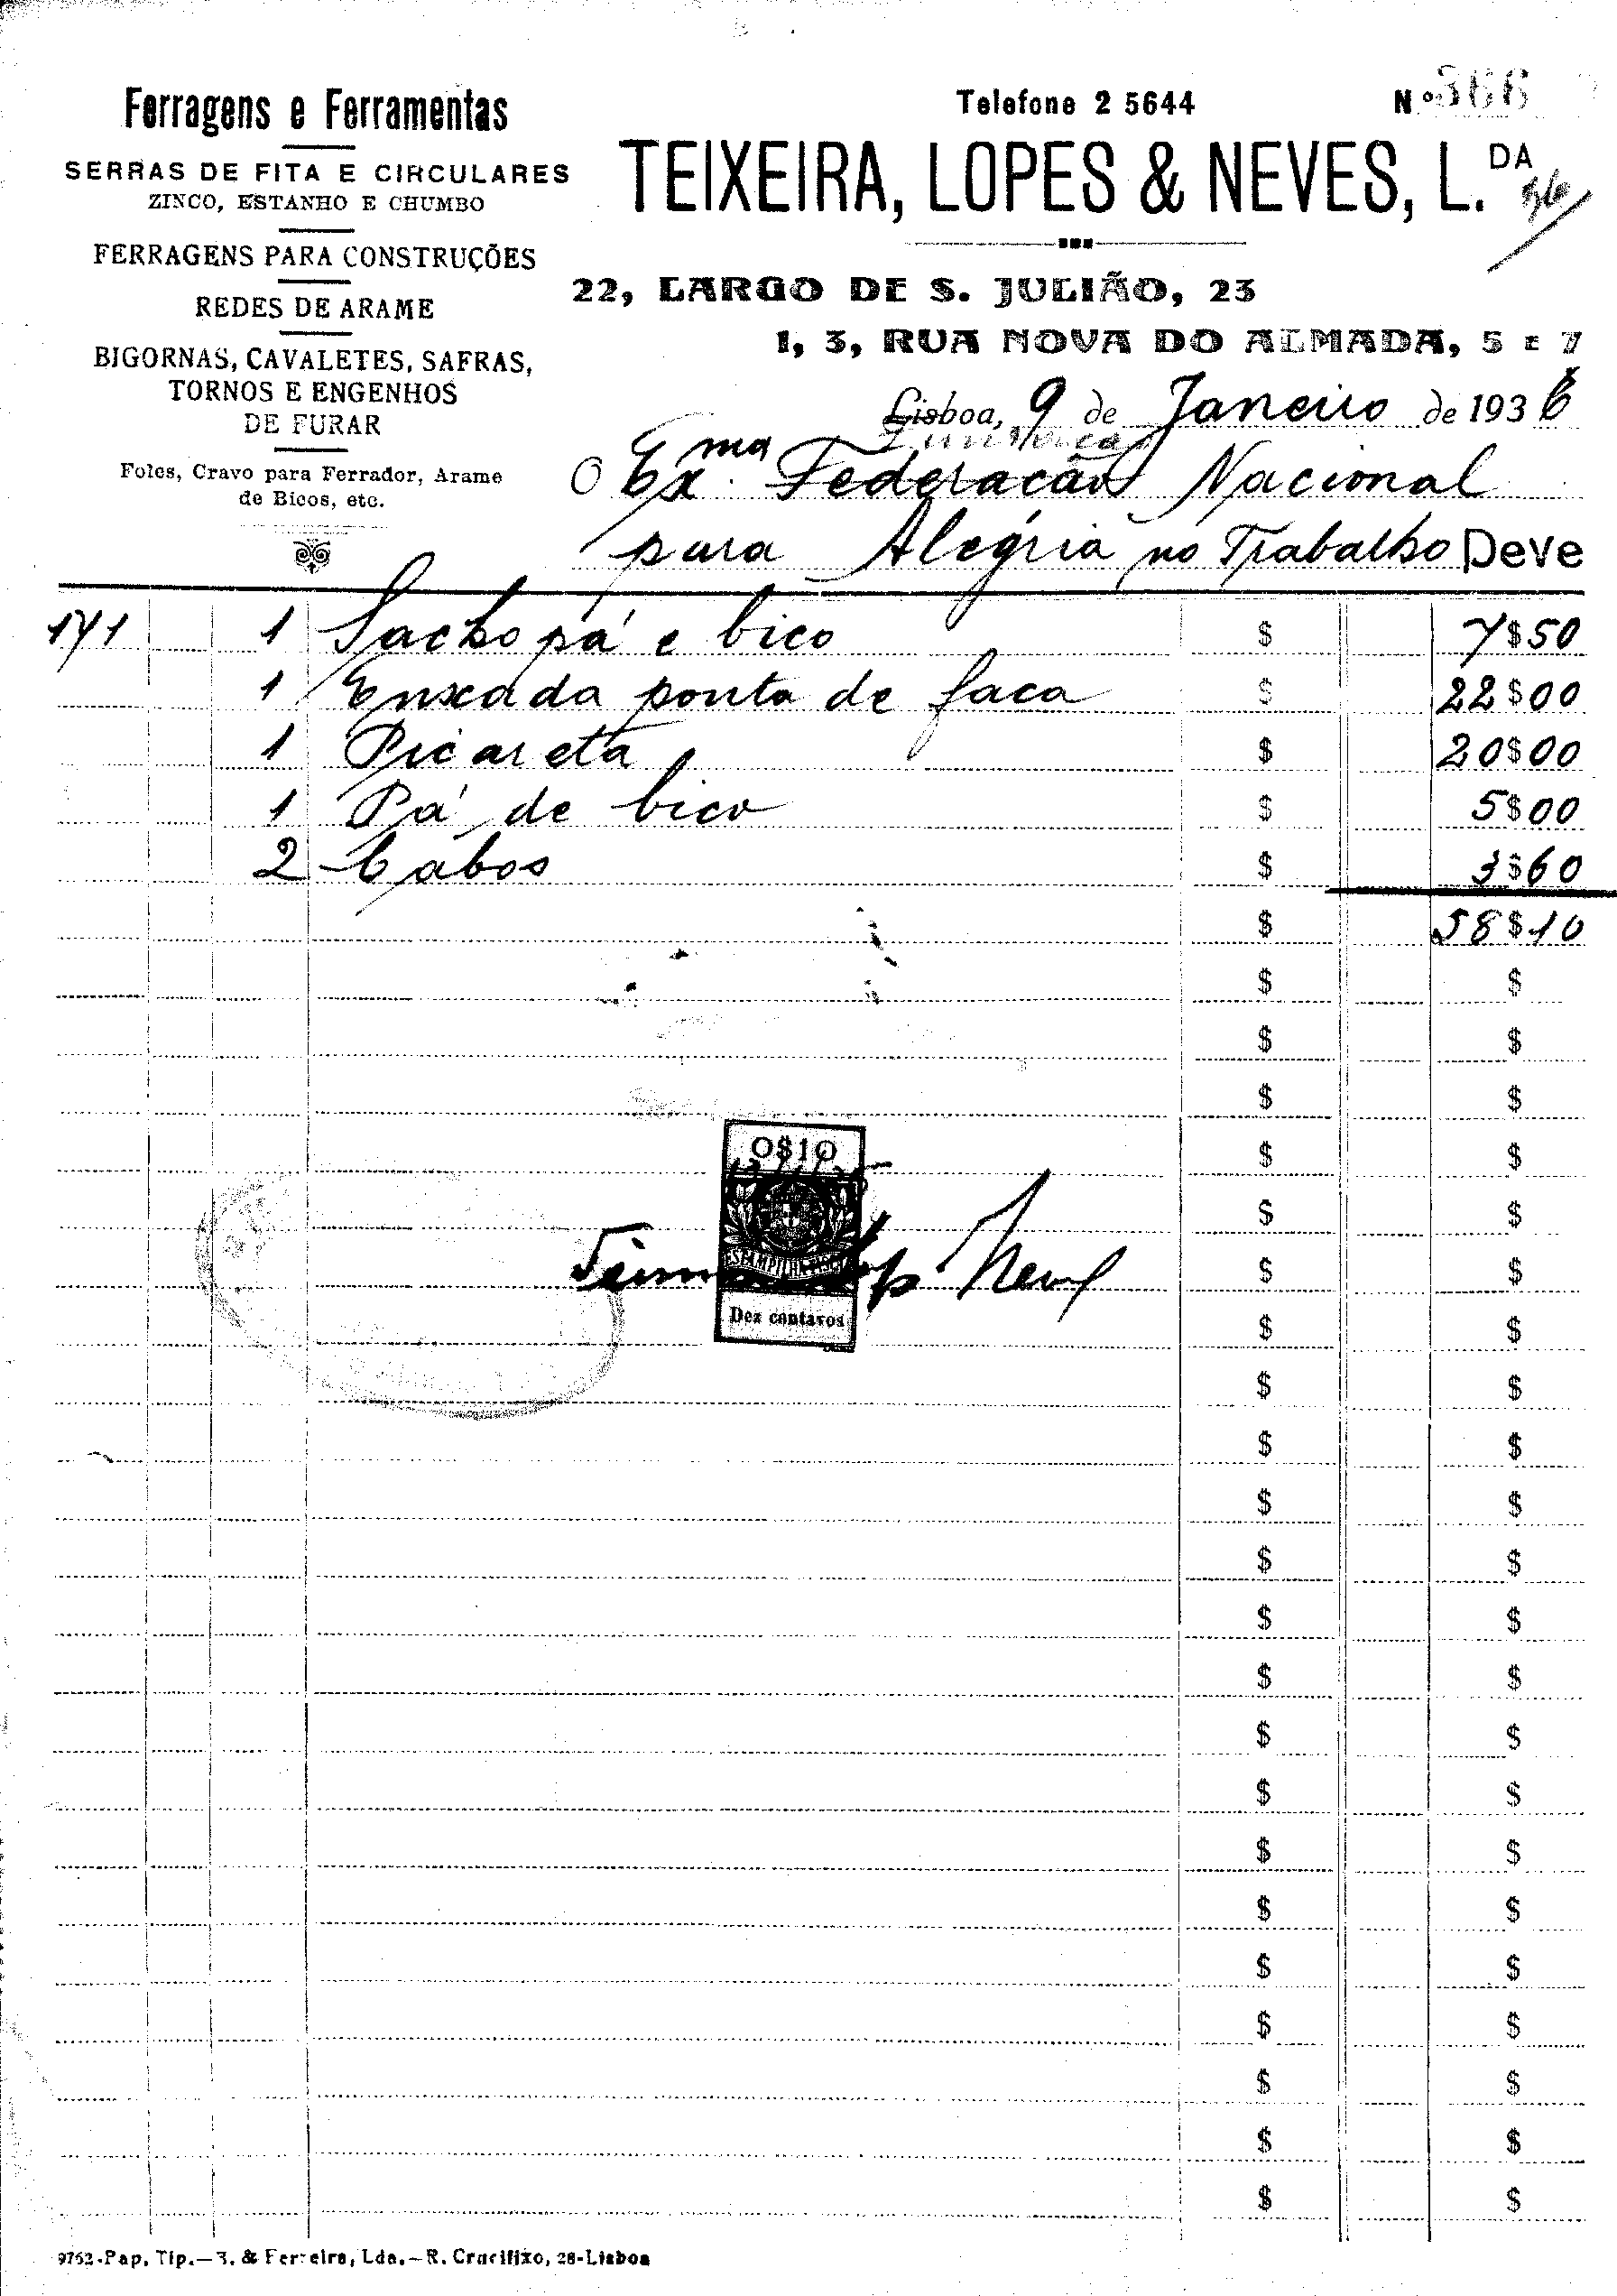 Ferragens e Ferramentas
SERRAS DE FITA E CIRCULARES
ZINCO, ESTANHO E CHUMBO
FERRAGENS PARA CONSTRUÇÕES
REDES DE ARAME
BIGORNAS, CAVALETES, SAFRAS,
TORNOS E ENGENHOS
DE FURAR
Foles, Cravo para Ferrador, Arame
de Bicos, etc.
Telefone 2 5644
Nº 366
TEIXEIRA, LOPES & NEVES, L.DA
22, LARGO DE S. JULIÃO, 23
1, 3, RUA NOVA DO ALMADA, 5 E 7
Lisboa, 9 de Janeiro de 1936
Fundação
O Exma. Federacão Nacional
para Alegria no Trabalho Deve
171 1 Sacho pá e bico $ 7$50
1 Enxada ponta de faca $ 22$00
1 Picareta $ 20$00
1 Pá de bico $ 5$00
2 Cabos $ 3$60
$ 58$10
0$10
ESTAMPILHA FISCAL
Dez centavos
9762-Pap. Tip.— & Ferreira, Lda.—R. Crucifixo, 28-Lisboa